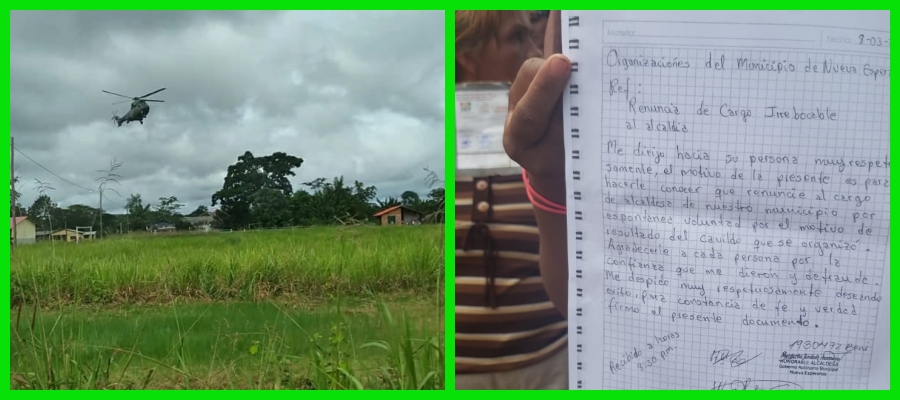 Fecha: 8-03-
Organizaciones del Municipio de Nueva Esper
Ref:
Renuncia de Cargo Irrebocable
al alcaldia
Me dirijo hacia su persona muy respetu
samente, el motivo de la presente es para
hacerle conocer que renuncie al cargo
de alcaldesa de nuestro municipio por
espontánea voluntad por el motivo de
resultado del cavildo que se organizó.
Agradecerle a cada persona por la
confianza que me dieron y defraude.
Me despido muy respetuosamente deseando
exito, para constancia de fe y verdad
firmo el presente documento.
Recibido a horas
3:30 p.m.
1930432 Beni
HONORABLE ALCALDESA
Gobierno Autónomo Municipal
Nueva Esperanza